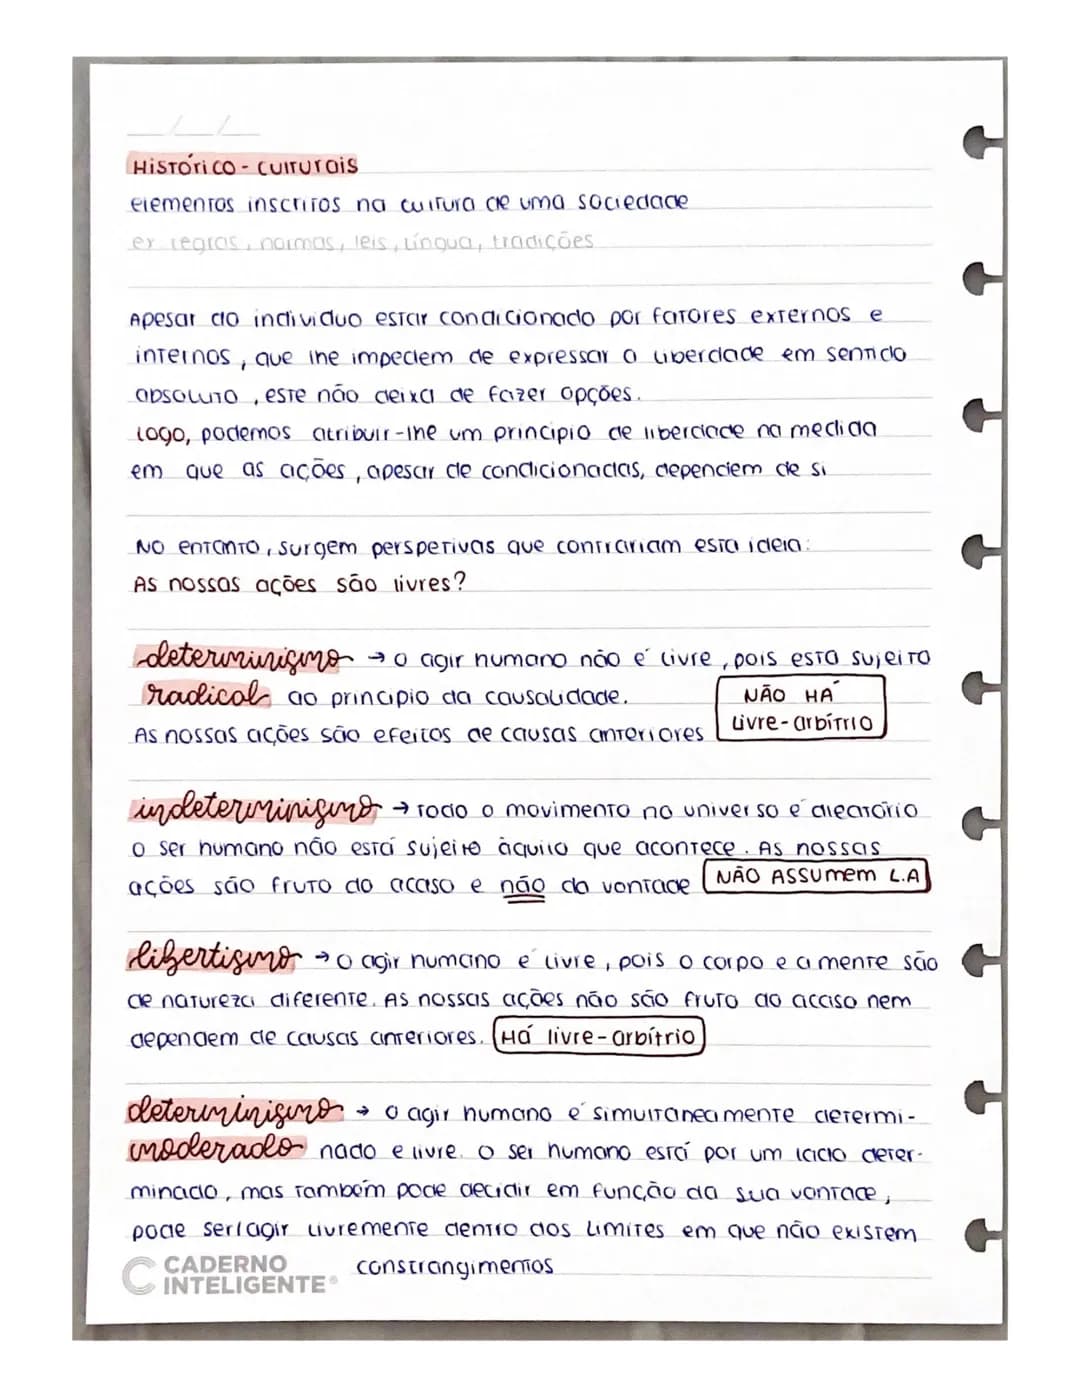 __/__/__
Histórico - culturais
elementos inscritos na cultura de uma sociedade
ex regras, normas, leis, língua, tradições
Apesar do individuo estar condicionado por fatores externos e
internos, que lhe impedem de expressar a liberdade em sentido
absoluto, este não deixa de fazer opções.
Logo, podemos atribuir-lhe um principio de liberdade na medida
em que as ações, apesar de condicionadas, dependem de si
No entanto, surgem perspetivas que contrariam esta ideia:
As nossas ações são livres?
determinismo → o agir humano não é livre, pois está sujeito
radical ao principio da causalidade.
NÃO HÁ
Livre-arbítrio
As nossas ações são efeitos de causas anteriores
indeterminismo → todo o movimento no universo é aleatório
O ser humano não está sujeito àquilo que acontece. As nossas
ações são fruto do acaso e não da vontade NÃO ASSUmem L.A
libertismo → o agir humano é livre, pois o corpo e a mente são
de natureza diferente. As nossas ações não são fruto do acaso nem
dependem de causas anteriores. Há livre-arbítrio
determinismo → o agir humano é simultaneamente determi-
moderado nado e livre. O ser humano está por um lado deter-
minado, mas também pode decidir em função da sua vontade,
pode ser/agir livremente dentro dos limites em que não existem
constrangimentos
CADERNO
INTELIGENTE®